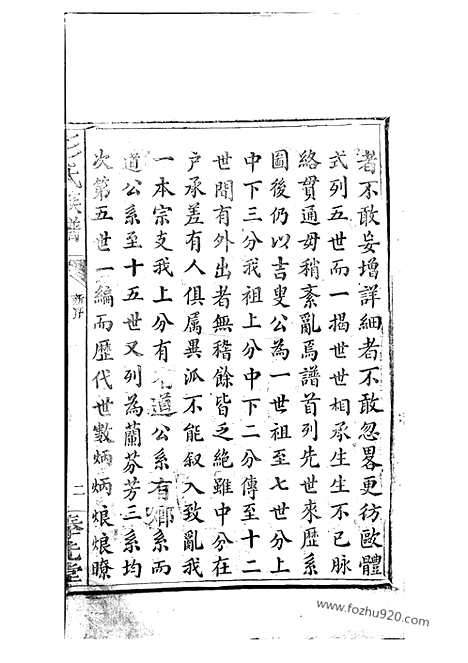 者不敢妄增詳細者不敢忽畧更彷歐體
式列五世而一揭世世相承生生不已脉
絡貫通毋稍紊亂焉譜首列先世來歷系
圖後仍以吉叟公為一世祖至七世分上
中下三分我祖上分中下二分傳至十二
世間有外出者無稽餘皆乏絶雖中分在
户承差有人俱属異派不能叙入致亂我
一本宗支我上分有道公系有鄉系而
道公系至十五世又列為蘭芬芳三系均
次第五世一編而歷代世數炳炳烺烺瞭
氏族譜
二
www.fozhu920.com